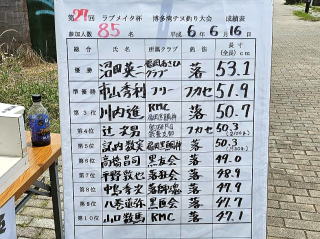 第29回 ラブメイタ杯 博多湾チヌ釣り大会 成績表
参加人数 85名 平成6年6月16日
総合 氏名 所属クラブ 釣法 長寸(全長)cm
優勝 沼田英二 クラブ 落 53.1
準優勝 中山秀利 フリー フカセ 51.9
第3位 川内進 KMC 落 50.7
第4位 辻文男 フカセ 50.3
第5位 落 50.3
第6位 高橋昌司 黒友会 落 49.0
第7位 平野敦 落 48.9
第8位 中島孝史 落 47.9
第9位 八巻重弥 黒臣会 落 47.7
第10位 山口数馬 KMC 落 47.1